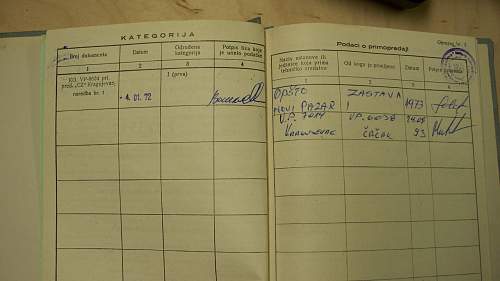 KATEGORIJA
Broj dokumenta
Datum
Određena kategorija
Potpis lica koje je unelo podatke
1
2
3
4
KO. VP-8634 pri, pred. „CZ" Kragujevac, naredba br. 1
4. 01. 72
I (prva)
Podaci o primopredaji
Obrazac br. 1
Naziv ustanove ili jedinice koja prima tehničko sredstvo
Od koga je primljeno
Datum
1
2
3
4
OPŠTO
NOVI PAZAR
ZASTAVA
1
1973
V.P. 7014
VP.
ČAČAK
93